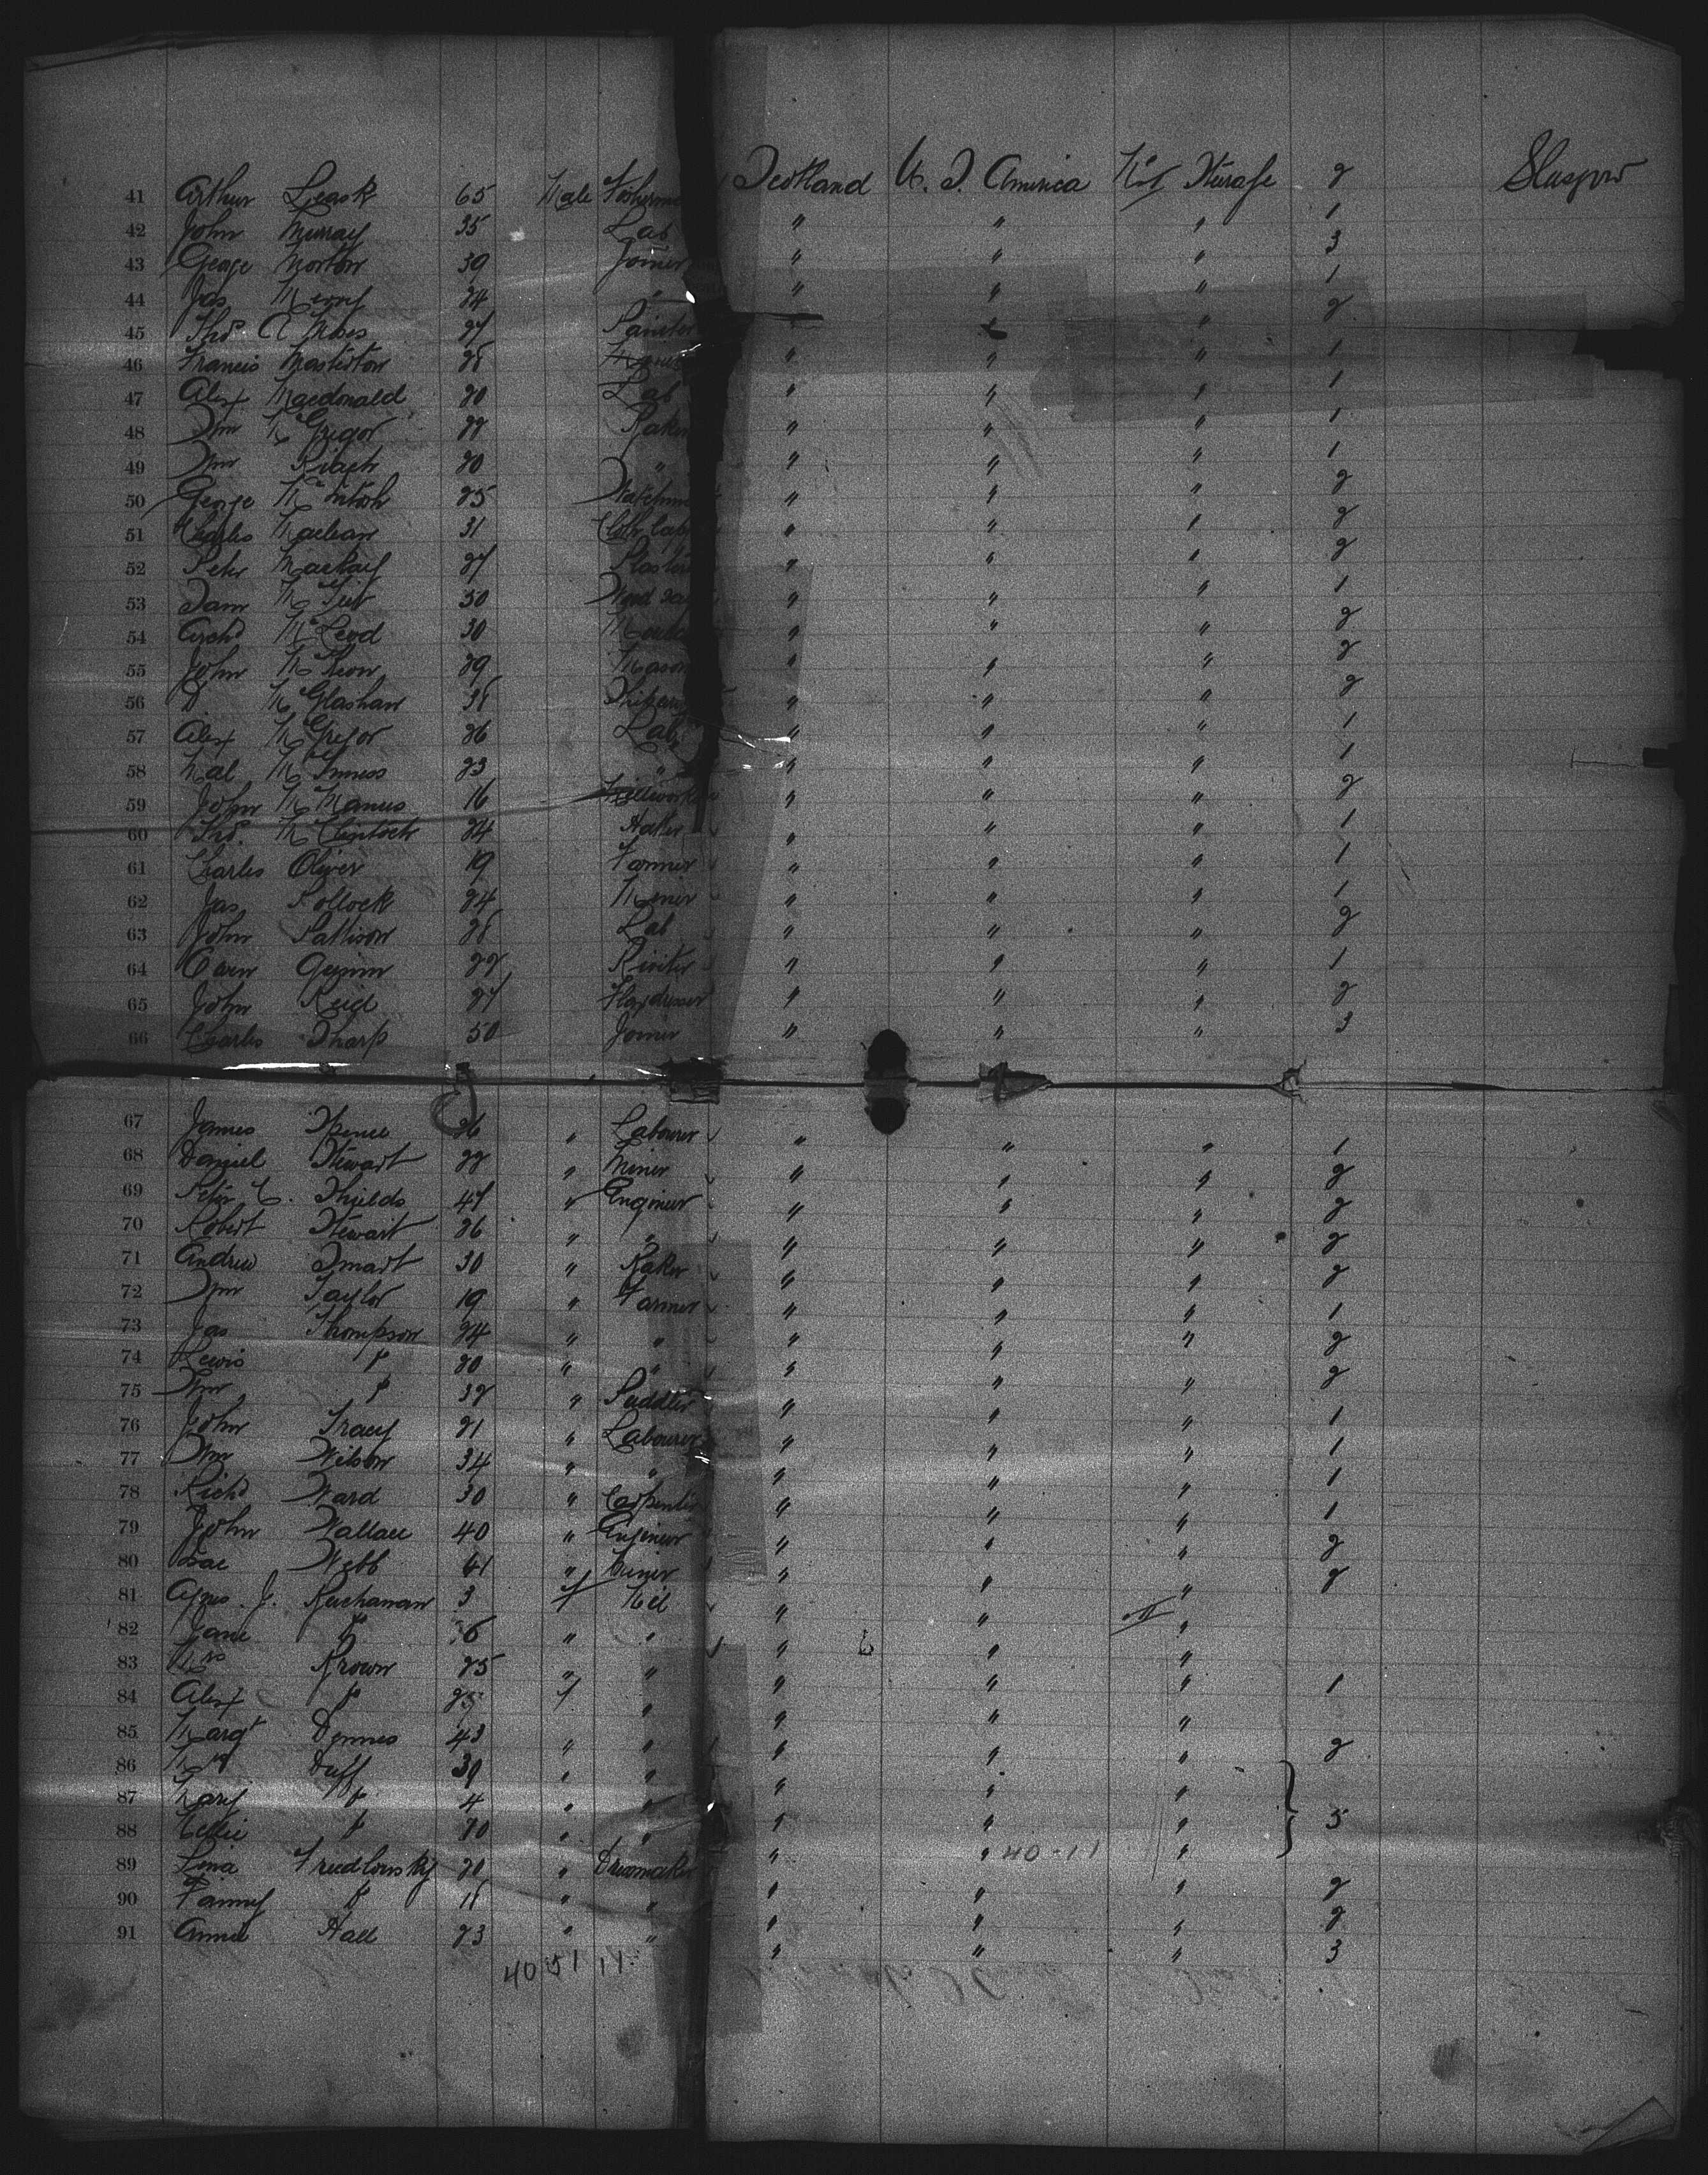 41 Arthur Leask 65 Male Fisherm Scotland U. S. America No 1 Sterage 2 Glasgow
42 John Murray 35 Lab " " " 1
43 George Morton 39 Joiner " " " 3
44 Jas 24 " " " " 1
45 Thos A 27 Painter " " 2
46 Francis Masterton 28 " " " 1
47 Alex Macdonald 20 Lab " " " 1
48 Wm McGregor 22 Baker " " " 1
49 Wm Riach 20 " " " " 1
50 George McIntosh 25 Watchm " " " 2
51 Charles Maclean 31 " " " 2
52 Peter Mackay 27 Plaste " " " 2
53 Sam 50 " " " 1
54 Archd McLeod 30 Mould " " " 2
55 John McKeon 29 Mason " " " 2
56 D McGlashan 38 " " " 2
57 Alex McGregor 26 Lab " " " 1
58 Mal McInness 23 " " " " 1
59 John McManus 16 Millworker " " " 2
60 Thos. McClintock 24 " " " 1
61 Charles Oliver 19 Farmer " " " 1
62 Jas Pollock 24 Miner " " " 1
63 John Pattison 28 Lab " " " 2
64 Owen Quinn 22 Riviter " " " 1
65 John Reid 27 Flaxdresser " " " 2
66 Charles Sharp 50 Joiner " " " 3
67 James Spence 26 " Labourer " " " 1
68 Daniel Stewart 22 " Miner " " " 2
69 Peter C. Shields 47 " Engineer " " " 2
70 Robert Stewart 26 " " " " " 2
71 Andrew Smart 30 " Baker " " " 2
72 Wm Taylor 19 " Farmer " " " 1
73 Jas Thompson 24 " " " " " 2
74 Lewis " 20 " " " " " 2
75 Wm " 32 " Puddler " " "
76 John Tracy 21 " Labourer " " " 1
77 Wm Wilson 34 " " " " " 1
78 Richd Ward 30 " Carpenter " " " 1
79 John Wallace 40 " Engineer " " " 1
80 Isac Webb 41 " Miner " " " 2
81 Agnes. J. Buchanan 3 f Nil " " " 2
82 Jane " 6 " " " " "
83 Mrs Brown 25 " " " " "
84 Alex " 25 " " " " 1
85 Margt Dennes 43 " " " " "
86 Mrs Duff 39 " " " " " 2
87 Mary " 4 " " " " "
88 " 20 " " " " " 5
89 Lina Friedlousky 20 " Dressmaker " " 40-11 "
90 Fanny " 18 " " " " " 2
91 Annie Hall 23 " " " " " 2
" " " 3
40 51 11